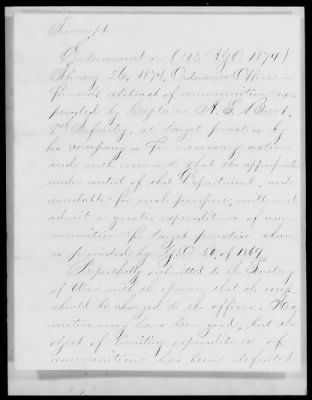 Transcript
Endorsement on (103 A.G.O. 1874)
February 26, 1874, Ordnance Office –
abstract of ammunition ex-
pended by Captain A. E.
Infantry, at target practice by
his company – For necessary action
and with remark that the appropriation
under control of that Department, and
available for such purpose, will not
admit a greater expenditure of am-
munition for target practice than
is provided by G.O. 50, of 1869.
Respectfully submitted to the Secretary
of War with the opinion that the
should be charged to the officer. His
motive may have been good, but the
object of limiting expenditure of
ammunition has been defeated